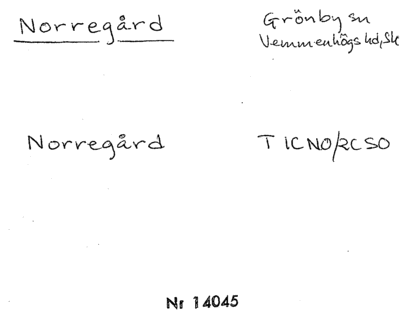 Norregård
Grönby sn
Vemmenhögs hd, Sk
Norregård
T 1CNO/2CSO
Nr 14045